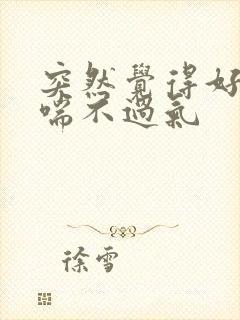 突然覺得好
喘不過氣
徐雪